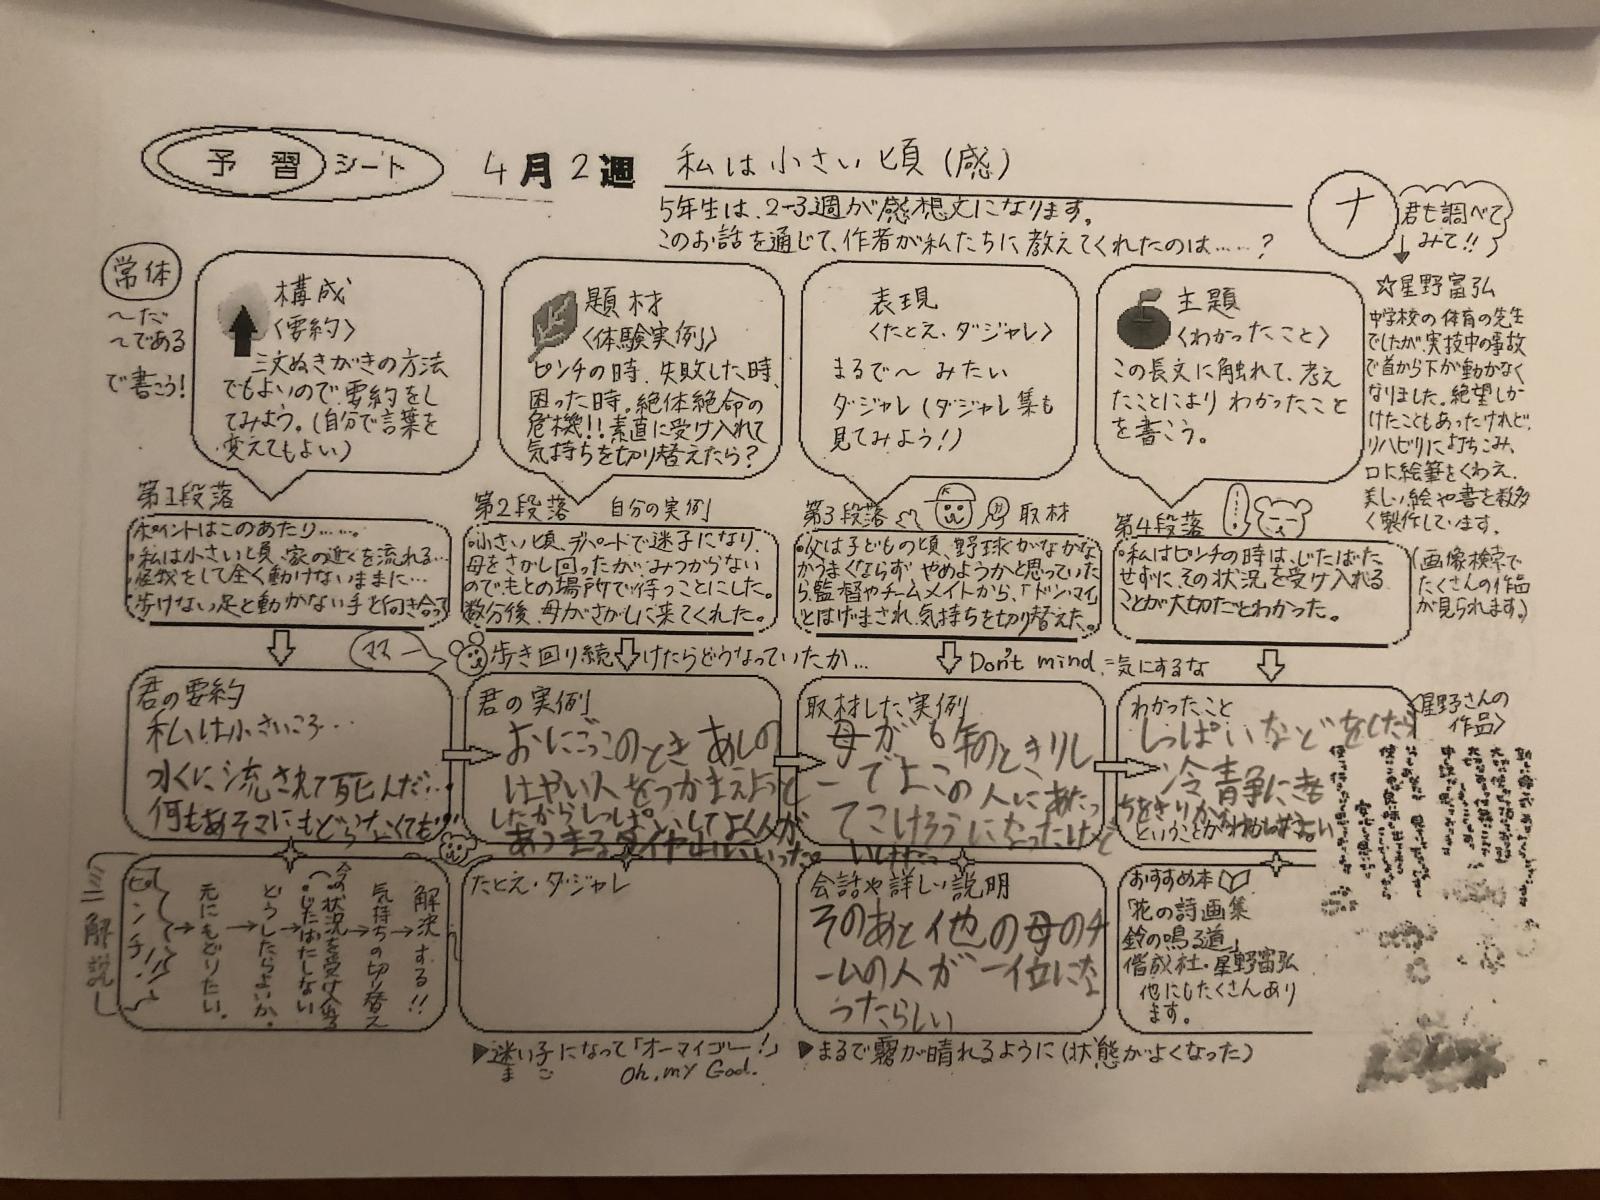 予習シート
4月2週
私は小さい頃(感)
5年生は、2-3週が感想文になります。
このお話を通じて、作者が私たちに教えてくれたのは……?
ナ
君も調べて
みて!!
常体
〜だ
〜である
で書こう!
構成
〈要約〉
三文ぬきがきの方法
でもよいので、要約をし
てみよう。(自分で言葉を
変えてもよい)
題材
〈体験実例〉
ピンチの時、失敗した時、
困った時。絶体絶命の
危機!!素直に受け入れて
気持ちを切り替えたら?
表現
〈たとえ・ダジャレ〉
まるで〜みたい
ダジャレ(ダジャレ集も
見てみよう!)
主題
〈わかったこと〉
この長文に触れて、考え
たことにより わかったこと
を書こう。
☆星野富弘
中学校の体育の先生
でしたが、実技中の事故
で首から下が動かなく
なりました。絶望しか
けたこともあったけれど、
リハビリに打ちこみ、
口に絵筆をくわえ、
美しい絵や書を数多
く製作しています。
(画像検索で
たくさんの作品
が見られます。)
第1段落
ポイントはこのあたり……。
・私は小さい頃、家の近くを流れる…
・怪我をして全く動けないままに…
・歩けない足と動かない手と向き合って
第2段落 自分の実例
・小さい頃、デパートで迷子になり、
母をさがし回ったが、みつからない
のでもとの場所で待つことにした。
数分後、母がさがしに来てくれた。
第3段落 取材
・父は子どもの頃、野球がなかな
かうまくならず やめようかと思っていた
ら、監督やチームメイトから、「ドンマイ」
とはげまされ、気持ちを切り替えた。
第4段落
・私はピンチの時は、じたばた
せずに、その状況を受け入れる
ことが大切だとわかった。
ママー
歩き回り続けたらどうなっていたか…
Don't mind.=気にするな
君の要約
私は小さいころ…
水くに流されて死んだ…
何もあそこにもどらなくても
君の実例
おにごっこのとき あしの
はやい人をつかまえようと
したからしっぱいしてよく人が
あつまる
取材した実例
母が6年のときリレ
ーでよこの人にあたっ
てこけそうになったけど
わかったこと
しっぱいなどをしたら
冷青争に
ちをきりか
ということが
〈星野さんの
作品〉
ミニ解説
ピンチ!!
→元にもどりたい。
→どうしたらよいか。
→今の状況を受け入れる
(じたばたしない
→気持ちの切り替え
→解決する!!
たとえ・ダジャレ
会話や詳しい説明
そのあと他の母のチ
ームの人が一位にな
ったらしい
おすすめ本
「花の詩画集
鈴の鳴る道」
偕成社・星野富弘
他にもたくさんあり
ます。
▶迷い子になって「オーマイゴー!」
ま ご Oh, my God.
▶まるで霧が晴れるように(状態がよくなった)